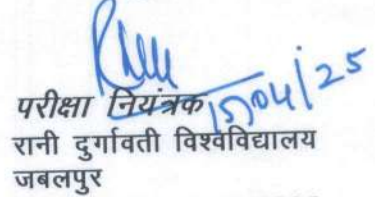 15/04/25
परीक्षा नियंत्रक
रानी दुर्गावती विश्वविद्यालय
जबलपुर